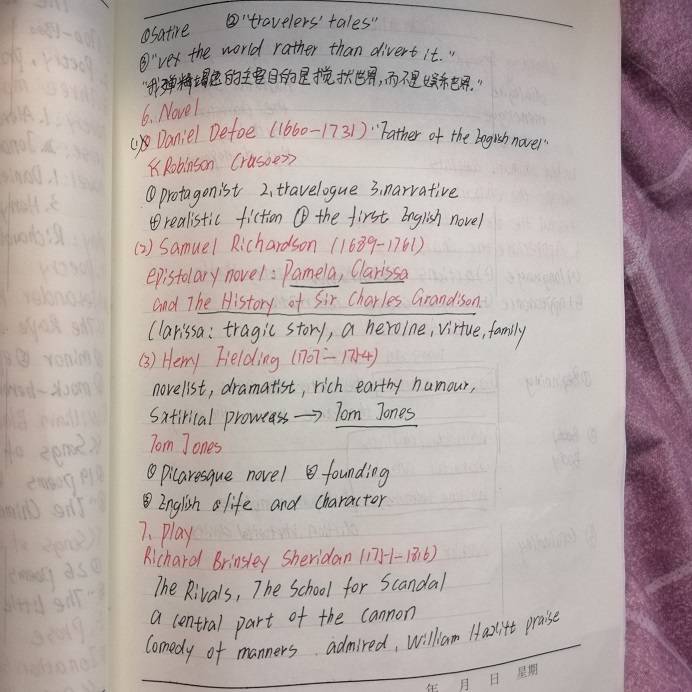 ①satire ②"travelers' tales"
③"vex the world rather than divert it."
的主要目的是搅扰世界,而不是娱乐世界."
6. Novel
(1) Daniel Defoe (1660-1731) "Father of the English novel"
《Robinson Crusoe》
①protagonist 2,travelogue 3,narrative
④realistic fiction ⑤ the first English novel
(2) Samuel Richardson (1689-1761)
epistolary novel: Pamela, Clarissa
and The History of Sir Charles Grandison
Clarissa: tragic story, a heroine, virtue, family
(3) Henry Fielding (1707-1754)
novelist, dramatist, rich earthy humour,
satirical prowess → Tom Jones
Tom Jones
① Picaresque novel ② founding
③ English life and charactor
7. Play
Richard Brinsley Sheridan (1751-1816)
The Rivals, The School for Scandal
a central part of the cannon
Comedy of manners. admired, William Hazlitt praise
年 月 日 星期